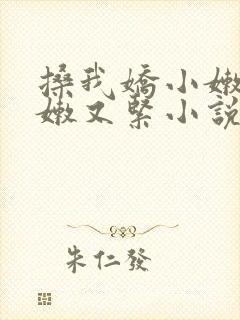 搡我嬌小嫩
嫩又緊小說
朱仁發